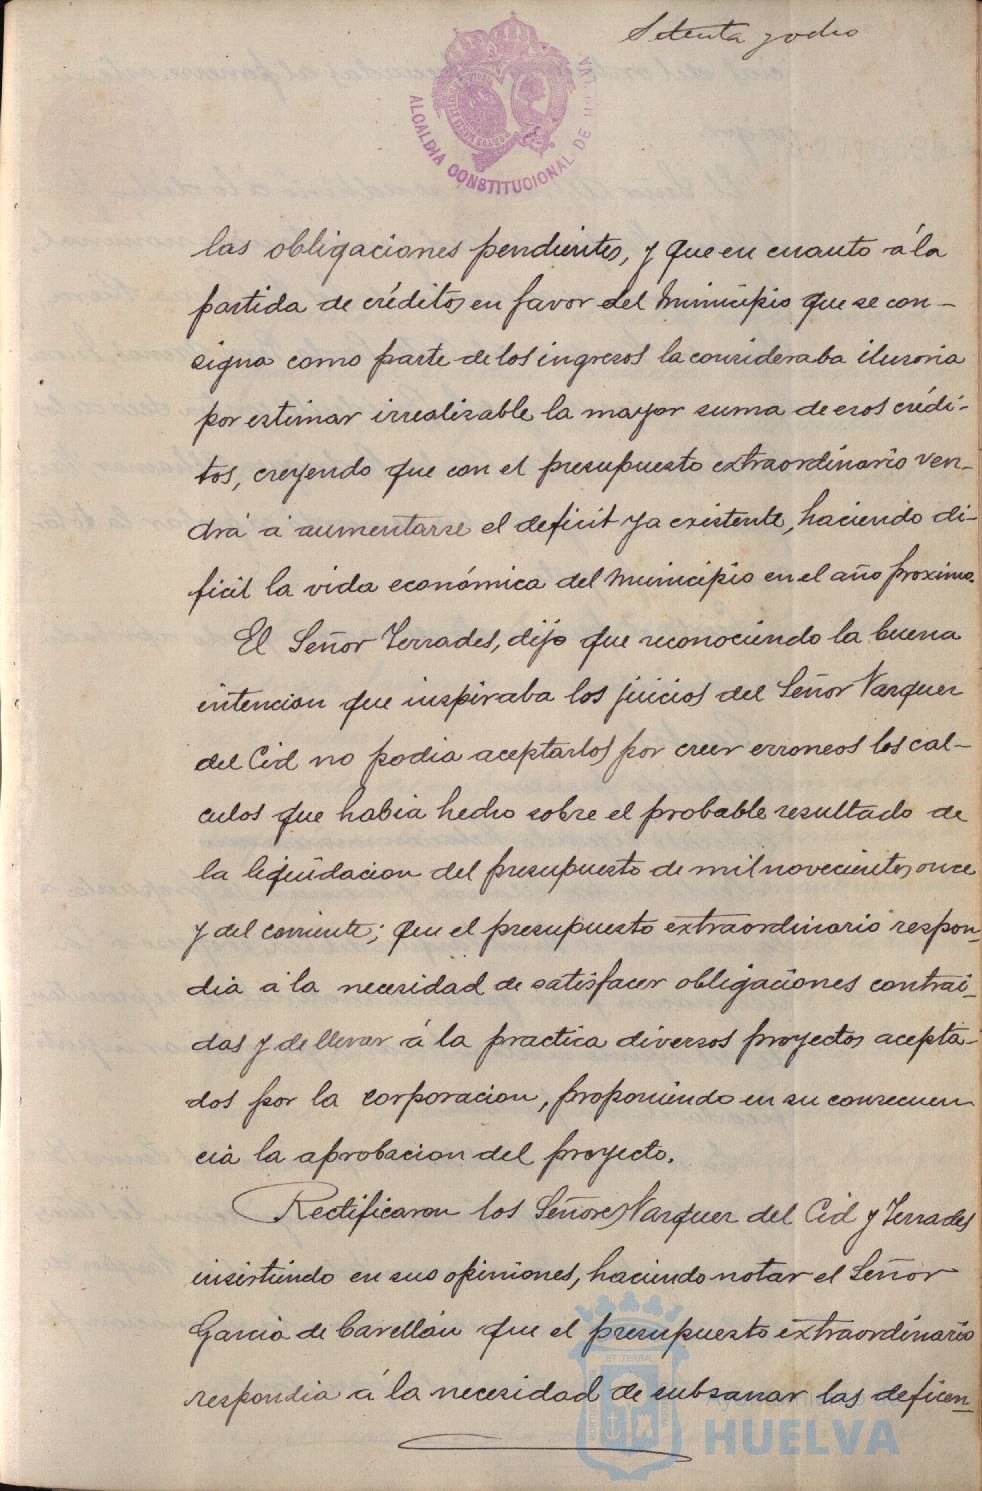 Setenta y ocho
ALCALDIA CONSTITUCIONAL DE
las obligaciones pendientes, y que en cuanto á la
partida de créditos en favor del Municipio que se con-
signa como parte de los ingresos la consideraba ilusoria
por estimar irrealizable la mayor suma de esos crédi-
tos, creyendo que con el presupuesto extraordinario ven-
drá á aumentarse el deficit ya existente, haciendo di-
ficil la vida económica del Municipio en el año proximo.
El Señor Terrades, dijo que reconociendo la buena
intencion que inspiraba los juicios del Señor Vazquez
del Cid no podia aceptarlos por creer erroneos los cal-
culos que habia hecho sobre el probable resultado de
la liquidacion del presupuesto de mil novecientos once
y del corriente; que el presupuesto extraordinario respon-
dia á la necesidad de satisfacer obligaciones contrai-
das y de llevar á la practica diversos proyectos acepta-
dos por la corporacion, proponiendo en su consecuen
cia la aprobacion del proyecto.
Rectificaron los Señores Vazquez del Cid y Terrades
insistiendo en sus opiniones, haciendo notar el Señor
Garcia de Cavellán que el presupuesto extraordinario
respondia á la necesidad de subsanar las deficen-
HUELVA